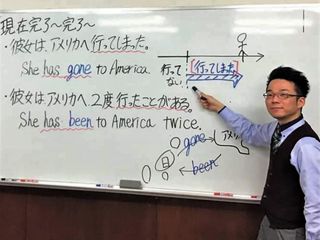 現在完了～完了～
・彼女はアメリカへ行ってしまった。
She has gone to America.
行って
ない
行ってしまった
・彼女はアメリカへ2度行ったことがある。
She has been to America twice.
gone
アメリカ
been